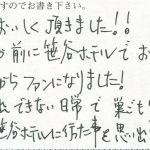 すのでお書き下さい。
おいしく頂きました!!
か前に笹谷ホテルでお
からファンになりました!
出できない日常で巣ごもり
笹谷ホテルに行った事を思い出